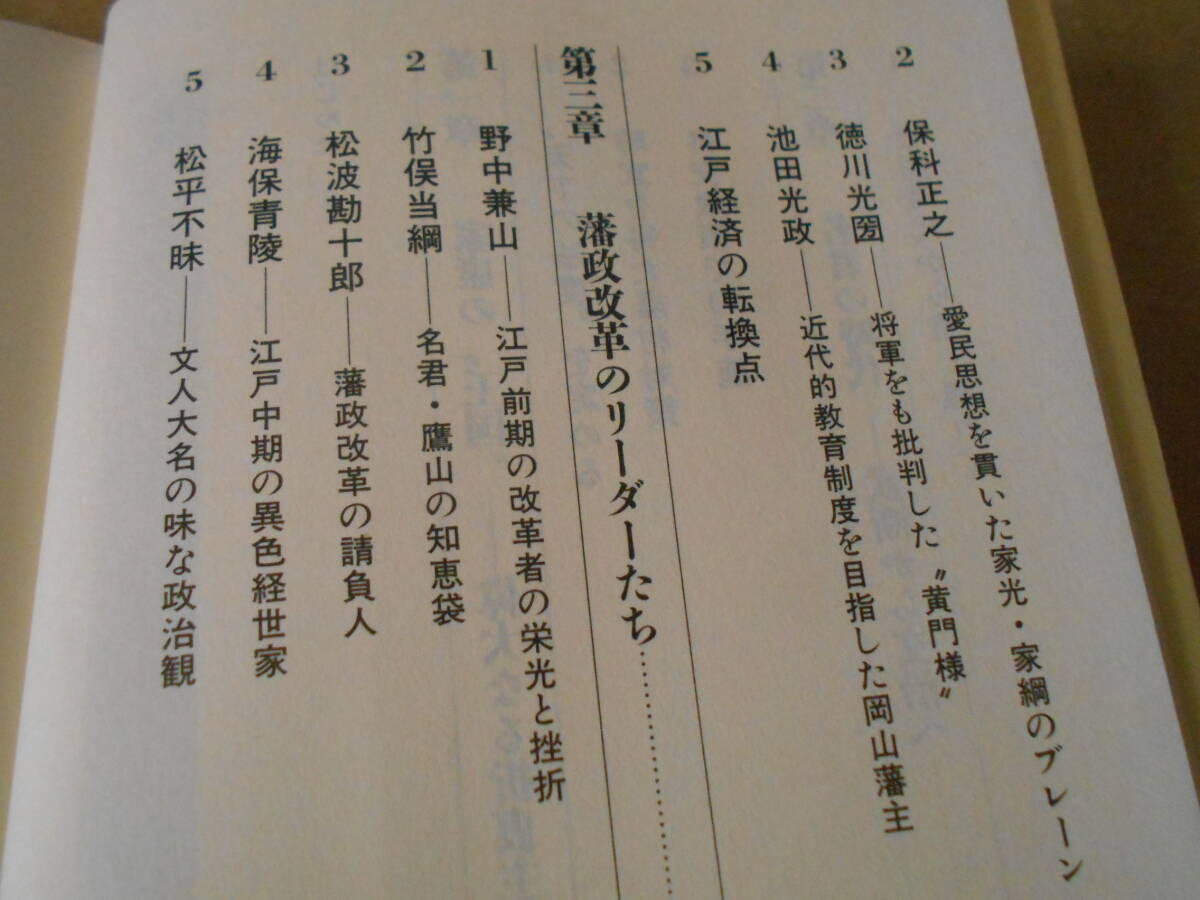 2 保科正之――愛民思想を貫いた家光・家綱のブレーン
3 徳川光圀――将軍をも批判した〝黄門様〟
4 池田光政――近代的教育制度を目指した岡山藩主
5 江戸経済の転換点
第三章 藩政改革のリーダーたち…………
1 野中兼山――江戸前期の改革者の栄光と挫折
2 竹俣当綱――名君・鷹山の知恵袋
3 松波勘十郎――藩政改革の請負人
4 海保青陵――江戸中期の異色経世家
5 松平不昧――文人大名の味な政治観